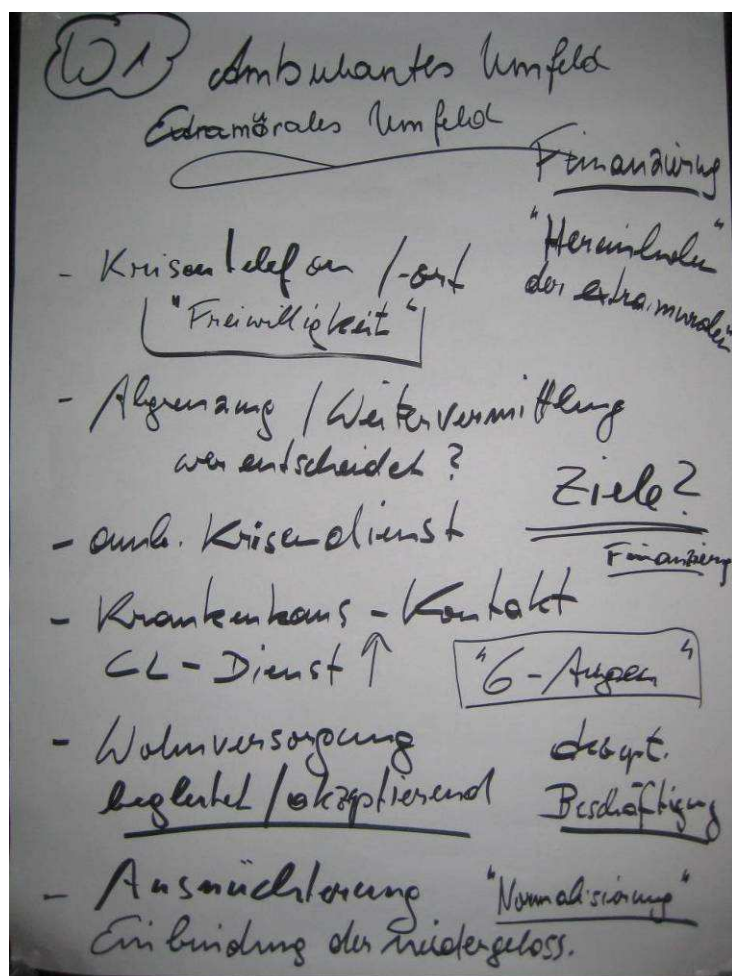 W1 Ambulantes Umfeld
Extramurales Umfeld
Finanzierung
- Krisentelefon /-ort
"Freiwilligkeit"
"Hereinholen"
der extramuralen
- Abgrenzung / Weitervermittlung
wer entscheidet?
Ziele?
Finanzierung
- amb. Krisendienst
- Krankenhaus - Kontakt
CL - Dienst ↑
"6 - Augen"
- Wohnversorgung
begleitet / akzeptierend
Beschäftigung
- Ausnüchterung
"Normalisierung"
Einbindung der niedergeloss.